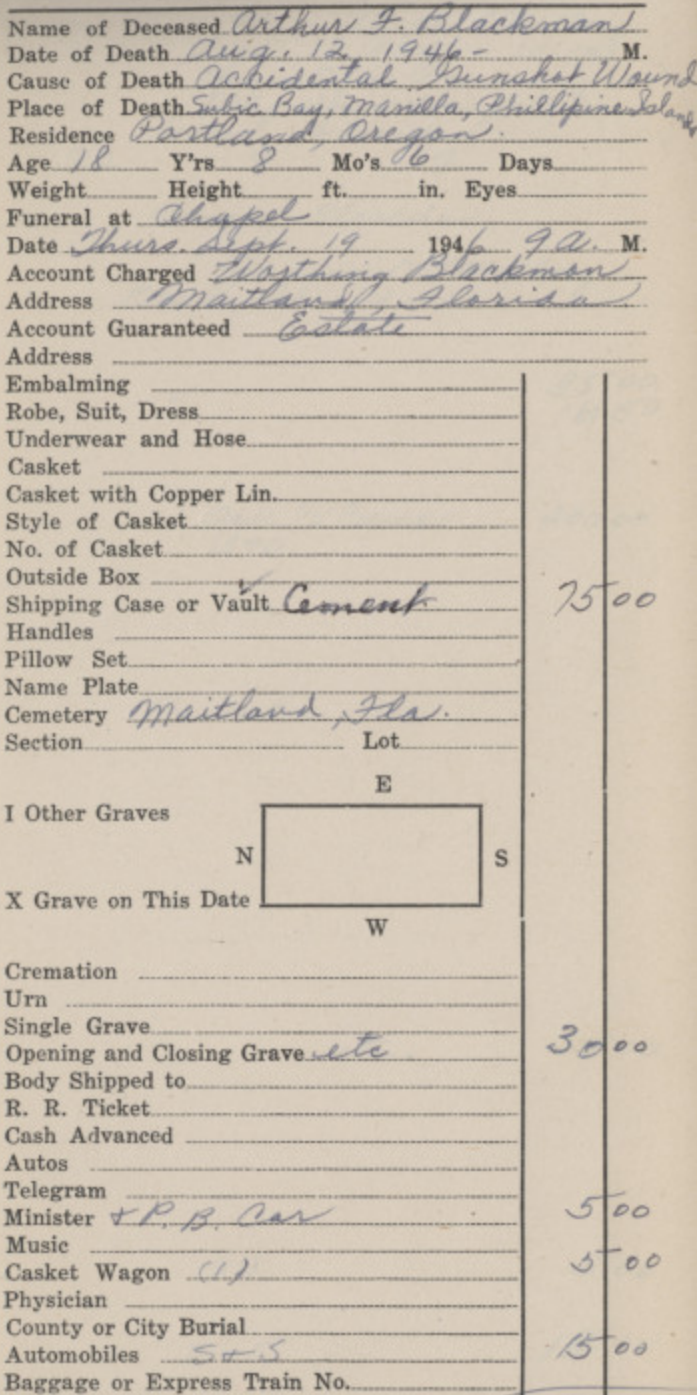 Name of Deceased Arthur F. Blackman
Date of Death Aug. 12, 1946- M.
Cause of Death Accidental Gunshot Wound
Place of Death Subic Bay, Manilla, Phillipine Islands
Residence Portland, Oregon.
Age 18 Y'rs 8 Mo's 6 Days
Weight Height ft. in. Eyes
Funeral at Chapel
Date Thurs. Sept. 19 1946 9 A. M.
Account Charged Worthing Blackman
Address Maitland, Florida
Account Guaranteed Estate
Address
Embalming
Robe, Suit, Dress
Underwear and Hose
Casket
Casket with Copper Lin.
Style of Casket
No. of Casket
Outside Box
Shipping Case or Vault Cement 75 00
Handles
Pillow Set
Name Plate
Cemetery Maitland, Fla.
Section Lot
E
I Other Graves
N S
X Grave on This Date
W
Cremation
Urn
Single Grave
Opening and Closing Grave etc 30 00
Body Shipped to
R. R. Ticket
Cash Advanced
Autos
Telegram
Minister + P. B. Car 5 00
Music
Casket Wagon (1) 5 00
Physician
County or City Burial
Automobiles S + S 15 00
Baggage or Express Train No.